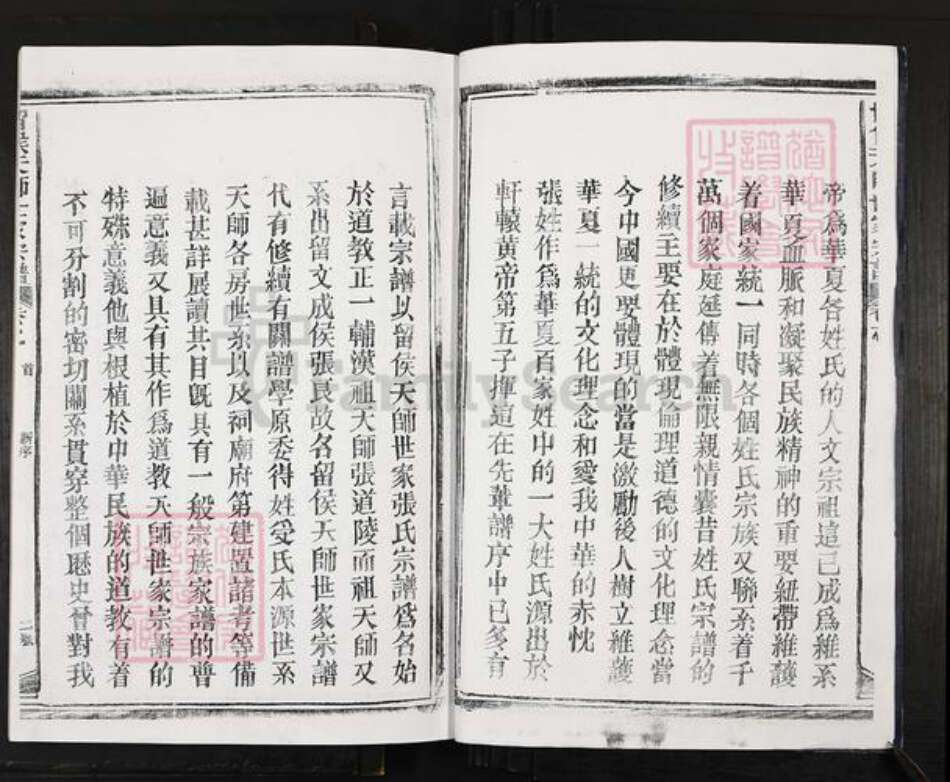 帝爲華夏各姓氏的人文宗祖這已成爲維系
華夏血脈和凝聚民族精神的重要紐帶維護
着國家統一同時各個姓氏宗族又聯系着千
萬個家庭延傳着無限親情囊昔姓氏宗譜的
修續主要在於體現倫理道德的文化理念當
今中國更要體現的當是激勵後人樹立維護
華夏一統的文化理念和愛我中華的赤忱
張姓作爲華夏百家姓中的一大姓氏源出於
軒轅黄帝第五子揮這在先輩譜序中已多有
言載宗譜以留侯天師世家張氏宗譜爲名始
於道教正一輔漢祖天師張道陵而祖天師又
系出留文成侯張良故名留侯天師世家宗譜
代有修續有關譜學原委得姓受氏本源世系
天師各房世系以及祠廟府第建置諸考等備
載甚詳展讀其目既具有一般宗族家譜的普
遍意義又具有其作爲道教天師世家宗譜的
特殊意義他與根植於中華民族的道教有着
不可分割的密切關系貫穿整個歷史晉對我
首
新序
二張
FamilySearch